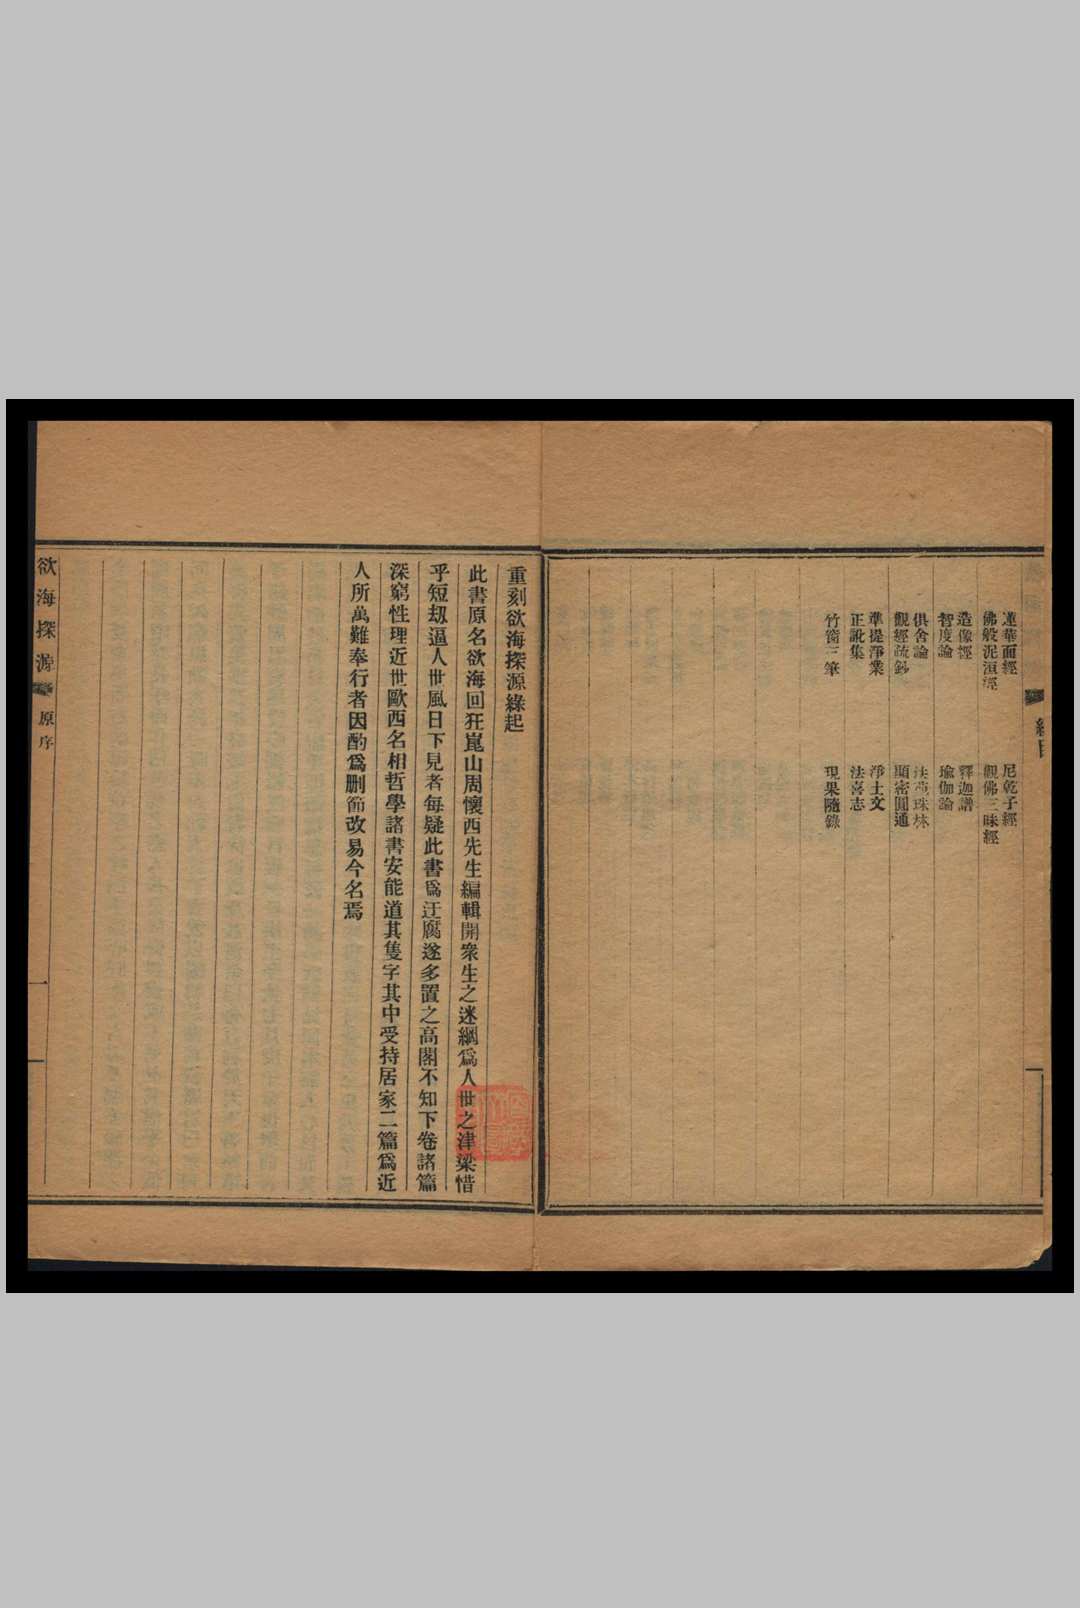 蓮華面經 尼乾子經
佛般泥洹經 觀佛三昧經
造像經 釋迦譜
智度論 瑜伽論
俱舍論 法苑珠林
觀經疏鈔 顯密圓通
準提淨業 淨土文
正訛集 法喜志
竹窗三筆 現果隨錄
重刻欲海探源緣起
此書原名欲海回狂崑山周懷西先生編輯開衆生之迷綱爲人世之津梁惜
乎短刼逼人世風日下見者每疑此書爲迂腐遂多置之高閣不知下卷諸篇
深窮性理近世歐西名相哲學諸書安能道其隻字其中受持居家二篇爲近
人所萬難奉行者因酌爲刪節改易今名焉
欲海探源 原序 一